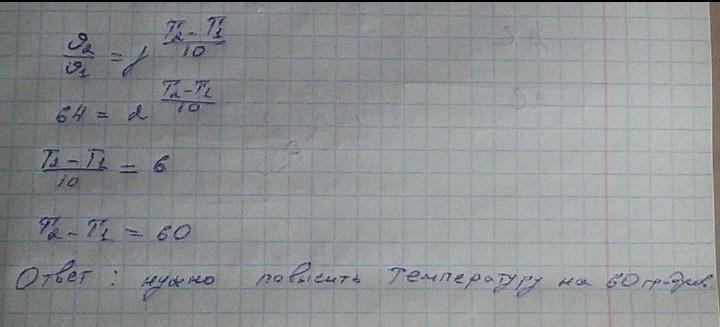 ϑ₂/ϑ₁ = γ^((T₂ - T₁)/10)
64 = 2^((T₂ - T₁)/10)
(T₂ - T₁)/10 = 6
T₂ - T₁ = 60
Ответ: нужно повысить температуру на 60 градусов.